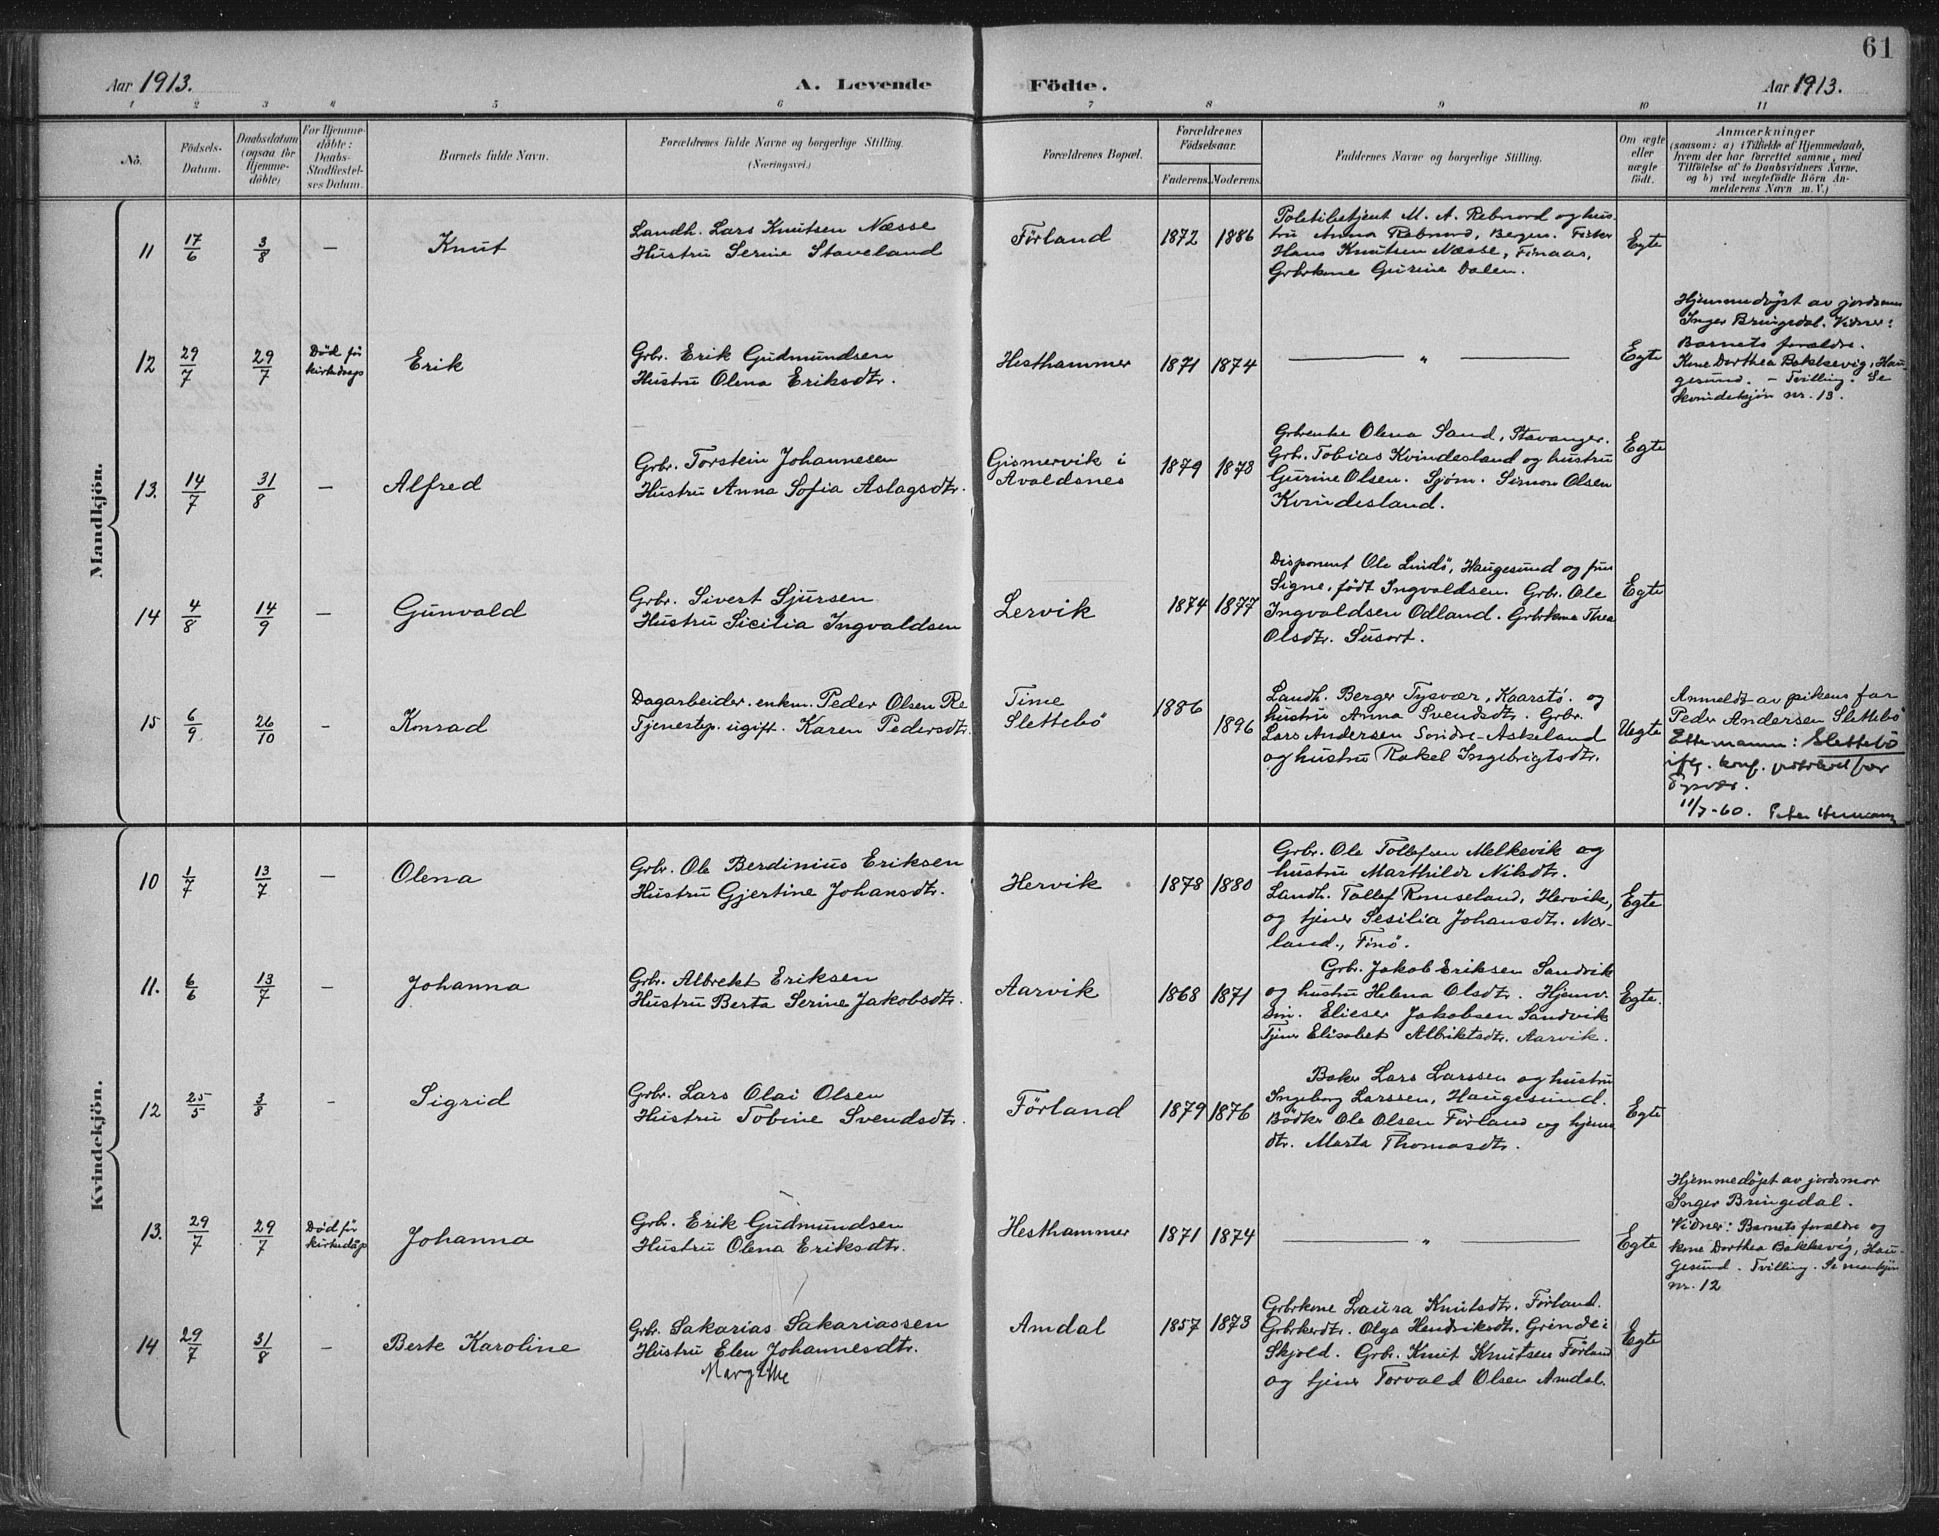 61
Aar 1913.
A. Levende
Födte.
Aar 1913.
1 2 3 4 5 6 7 8 9 10 11
No.
Födsels-
Datum.
Daabsdatum
(ogsaa for
Hjemme-
döbte)
For Hjemme-
döbte:
Daabs-
Stadfæstel-
ses Datum.
Barnets fulde Navn.
Forældrenes fulde Navne og borgerlige Stilling.
(Næringsvei.)
Forældrenes Bopæl.
Forældrenes
Födselsaar.
Faderens. Moderens.
Faddernes Navne og borgerlige Stilling.
Om ægte
eller
uægte
födt.
Anmærkninger
(saasom: a) i Tilfælde af Hjemmedaab,
hvem der har forrettet samme, med
Tilföielse af to Daabsvidners Navne.
og b) ved uægtefödte Börn An-
melderens Navn m. V.)
Mandkjön.
11 17/6 3/8 — Knut
Landh. Lars Knutsen Næsse
Hustru Serine Staveland
Førland 1872 1886
Politibetjent M. A. Rebnord og hus-
tru Anna Rebnord, Bergen. Fisker
Hans Knutsen Næsse, Finaas,
Grbrkone Gurine Dalen.
Egte
12 29/7 29/7
Død før
kirkedaap
Erik
Grbr. Erik Gudmundsen
Hustru Olena Eriksdtr.
Hesthammer 1871 1874
— „ —
Egte
Hjemmedøpt av jordemor
Inger Bringedal. Vidner:
Barnets forældre.
Kone Dorthea Bakkevig, Hau-
gesund. — Tvilling. Se
kvindekjøn nr. 13.
13. 14/7 31/8 — Alfred
Grbr. Torstein Johannesen
Hustru Anna Sofia Aslagsdtr.
Gismervik i
Avaldsnes
1879 1878
Grbrenke Olena Sand, Stavanger.
Grbr. Tobias Kvindesland og hustru
Gurine Olsen. Sjøm. Simon Olsen
Kvindesland.
Egte
14 4/8 14/9 — Gunvald
Grbr. Sivert Sjursen
Hustru Sicilia Ingvaldsen
Lervik 1874 1877
Disponent Ole Lindö, Haugesund og fru
Signe, født Ingvaldsen. Grbr. Ole
Ingvaldsen Odland. Grbrkone Thea
Olsdtr. Susort.
Egte
15 6/9 26/10 — Konrad
Dagarbeider. enkm. Peder Olsen Re
Tjenestep. ugift. Karen Pedersdtr.
Time
Slettebö
1886 1896
Landh. Berger Tysvær, Kaarstö. og
hustru Anna Svendsdtr. Grbr.
Lars Andersen Söndre-Askeland
og hustru Rakel Ingebrigtsdtr.
Uegte
Anmeldt av pikens far
Peder Andersen Slettebö
Etternamn: Slettebö
ifg. konf. protokol for
Tysvær.
11/7-60.
Kvindekjön.
10 1/7 13/7 — Olena
Grbr. Ole Berdinius Eriksen
Hustru Gjertine Johansdtr.
Hervik 1878 1880
Grbr. Ole Tollefsen Melkevik og
hustru Marthilde Nilsdtr.
Landh. Tollef Romseland, Hervik,
og tjener Sesilia Johansdtr. Nor-
land, Finö.
Egte
11. 6/6 13/7 — Johanna
Grbr. Albrekt Eriksen
Hustru Berta Serine Jakobsdtr.
Aarvik 1868 1871
Grbr. Jakob Eriksen Sandvik
og hustru Helena Olsdtr. Hjemv.
søn. Elieser Jakobsen Sandvik
Tjener Elisabet Albriktsdtr. Aarvik.
Egte.
12 25/5 3/8 — Sigrid
Grbr. Lars Olai Olsen
Hustru Tobine Svendsdtr.
Førland 1879 1876
Baker Lars Larssen og hustru
Ingeborg Larssen, Haugesund.
Bödker Ole Olsen Førland og hjemv
dtr. Marta Thomasdtr.
Egte
13. 29/7 29/7
Død før
kirkedåp
Johanna
Grbr. Erik Gudmundsen
Hustru Olena Eriksdtr.
Hesthammer 1871 1874
— „ —
Egte
Hjemmedøpt av jordemor
Inger Bringedal.
Vidner: Barnets forældre og
kone Dorthea Bakkevig, Hau-
gesund. Tvilling. Se mankjøn
nr. 12
14 29/7 31/8 — Berte Karoline
Grbr. Sakarias Sakariassen
Hustru Elen Johannesdtr.
Margrethe
Amdal 1857 1873
Grbrkone Laura Knutsdtr. Førland.
Grbrkerdtr. Olga Hendriksdtr. Grinde i
Skjold. Grbr. Knut Knutsen Førland
og tjener Torvald Olsen Amdal.
Egte